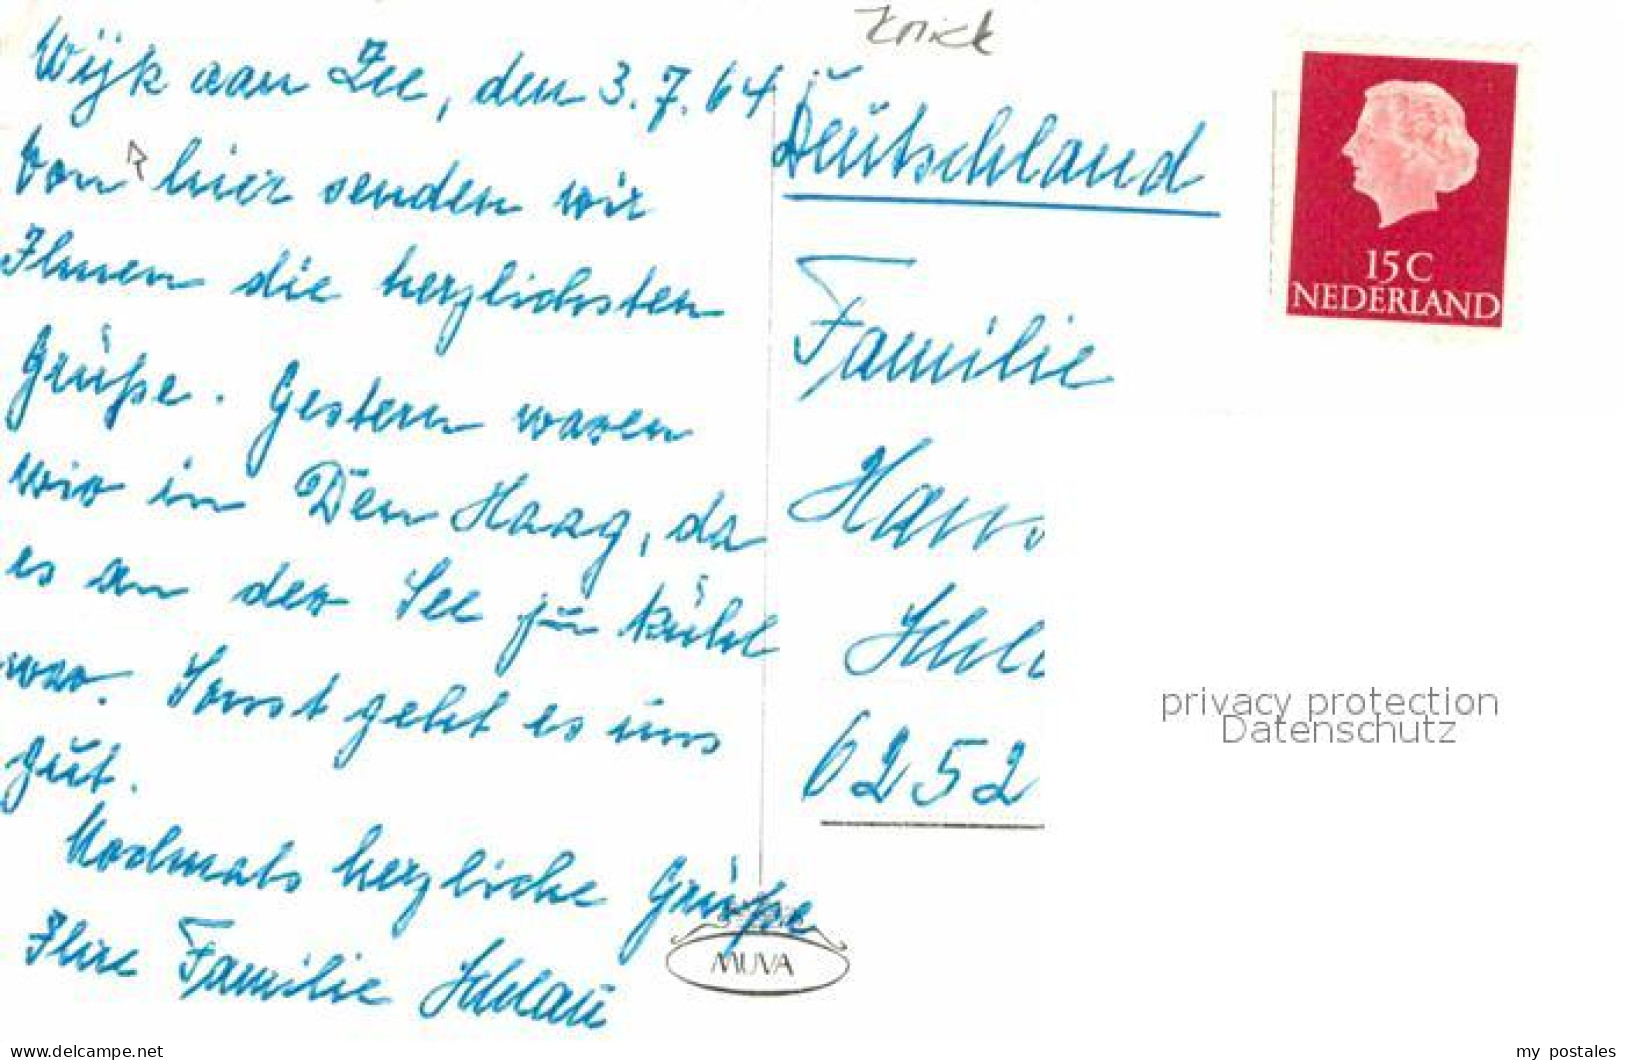 Knick
Wijk aan Zee, den 3.7.64
Von hier senden wir
Ihnen die herzlichsten
Grüße. Gestern waren
wir in Den Haag, da
es an der See zu kühl
war. Sonst geht es uns
gut.
Nochmals herzliche Grüße
Ihre Familie Schlau
Deutschland
Familie
6252
15 C
NEDERLAND
privacy protection
Datenschutz
MUVA
www.delcampe.net
my postales